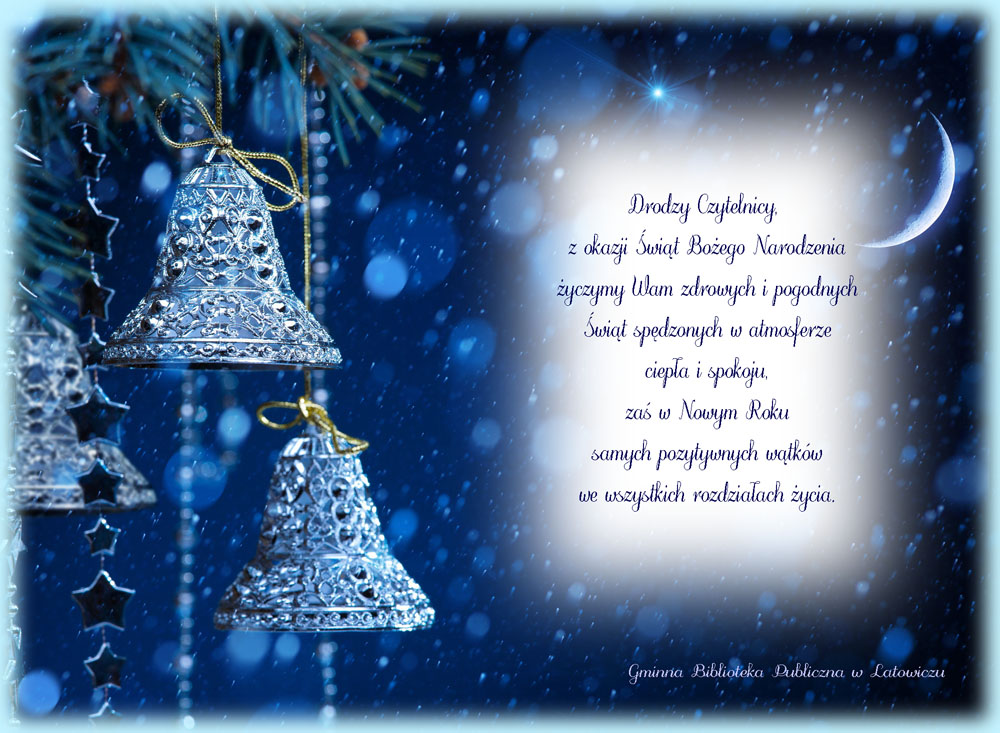 Drodzy Czytelnicy,
z okazji Świąt Bożego Narodzenia
życzymy Wam zdrowych i pogodnych
Świąt spędzonych w atmosferze
ciepła i spokoju,
zaś w Nowym Roku
samych pozytywnych wątków
we wszystkich rozdziałach życia.
Gminna Biblioteka Publiczna w Latowiczu